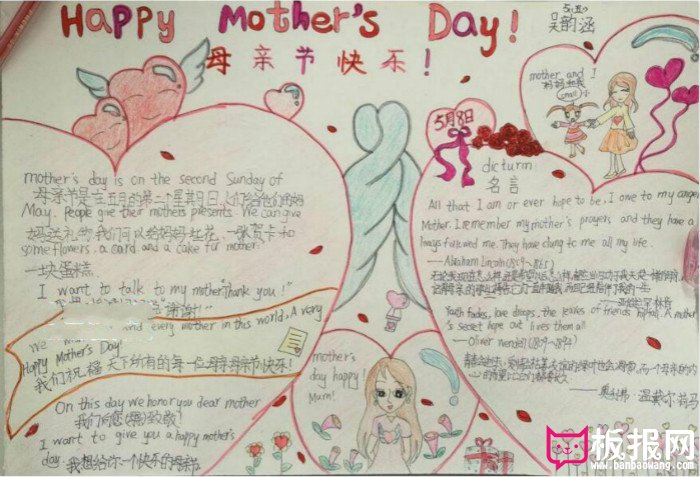 Happy Mother's Day!
母亲节快乐!
5.(五)
吴韵涵
mother and I
妈妈和我
(small)
5月8日
mother's day is on the second Sunday of
母亲节是在五月的第二个星期日,人们给他们的妈
May. People give their mothers presents. We can give
妈送礼物我们可以给妈妈红花、一张贺卡和
some flowers, a card and a cake for mother.
一块蛋糕
I want to talk to my mother"Thank you!"
谢谢!"
and every mother in this world, A very
We
Happy Mother's Day!
我们祝福天下所有的每一位母亲母亲节快乐!
On this day we honor you dear mother
我们向您 致敬!
I want to give you a happy mother's
day.
我想给你一个快乐的母亲节
dictum
名言
All that I am or ever hope to be, I owe to my angel
Mother. I remember my mother's prayers and they have a
lways followed me. They have clung to me all my life.
——Abraham Lincoln (1809~1865)
——亚伯拉罕 林肯
Youth fades, love droops, the leaves of friends hip fall. A mother's
secret hope out lives them all
——Oliver Wendell (1809~1894)
——奥利弗·温戴尔·荷马
mother's
day happy!
Mum!
板报网
www.banbaowang.com